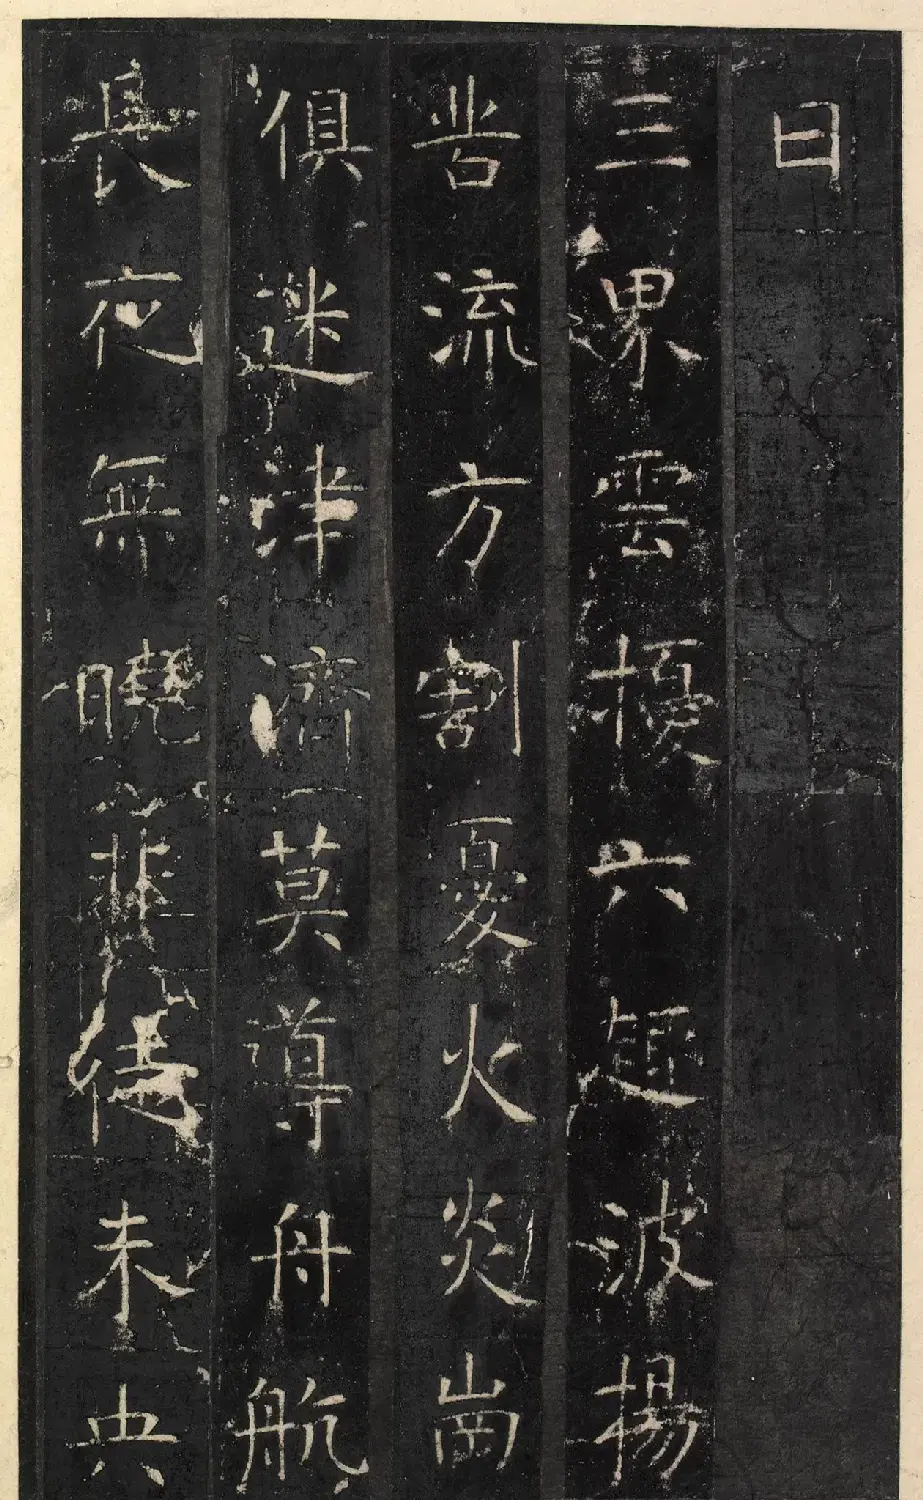 曰
三界雲擾六趣波揚
苦流方割憂火炎崗
俱迷津濟莫導舟航
長夜無曉悲未央